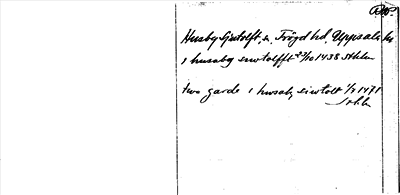 Husby Sjutolft, sn, Trögd hd, Uppsala län
i husaby siwtolfft 23/10 1438 Sthlm
two garde i husaby siwtolt 1/2 1471
Sthlm